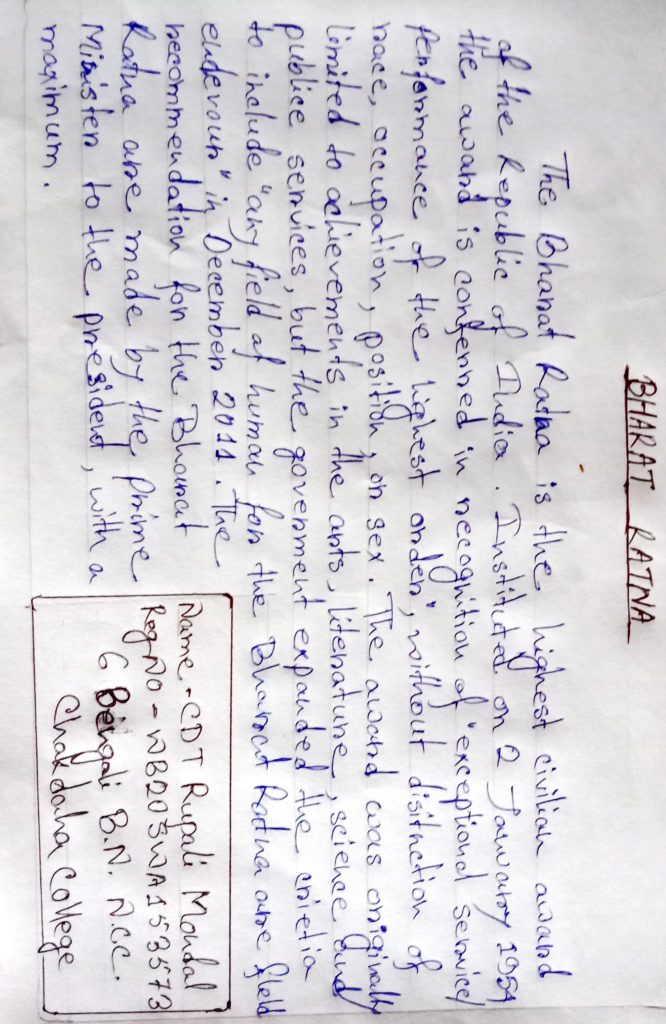 BHARAT RATNA
The Bharat Ratna is the highest civilian award
of the Republic of India. Instituted on 2 January 1954
the award is conferred in recognition of "exceptional service/
performance of the highest order", without disitnction of
race, occupation, position, or sex. The award was originally
limited to achievements in the arts, literature, science and
publice services, but the government expanded the crietia
to include "any field of human for the Bharat Ratna are field
enderour" in December 2011. The
recommendation for the Bharat
Ratna are made by the Prime
Minister to the president, with a
maximum.
Name - CDT Rupali Mondal
Reg NO - WB20SWA153573
6 Bengali B.N. N.C.C.
Chakdaha College